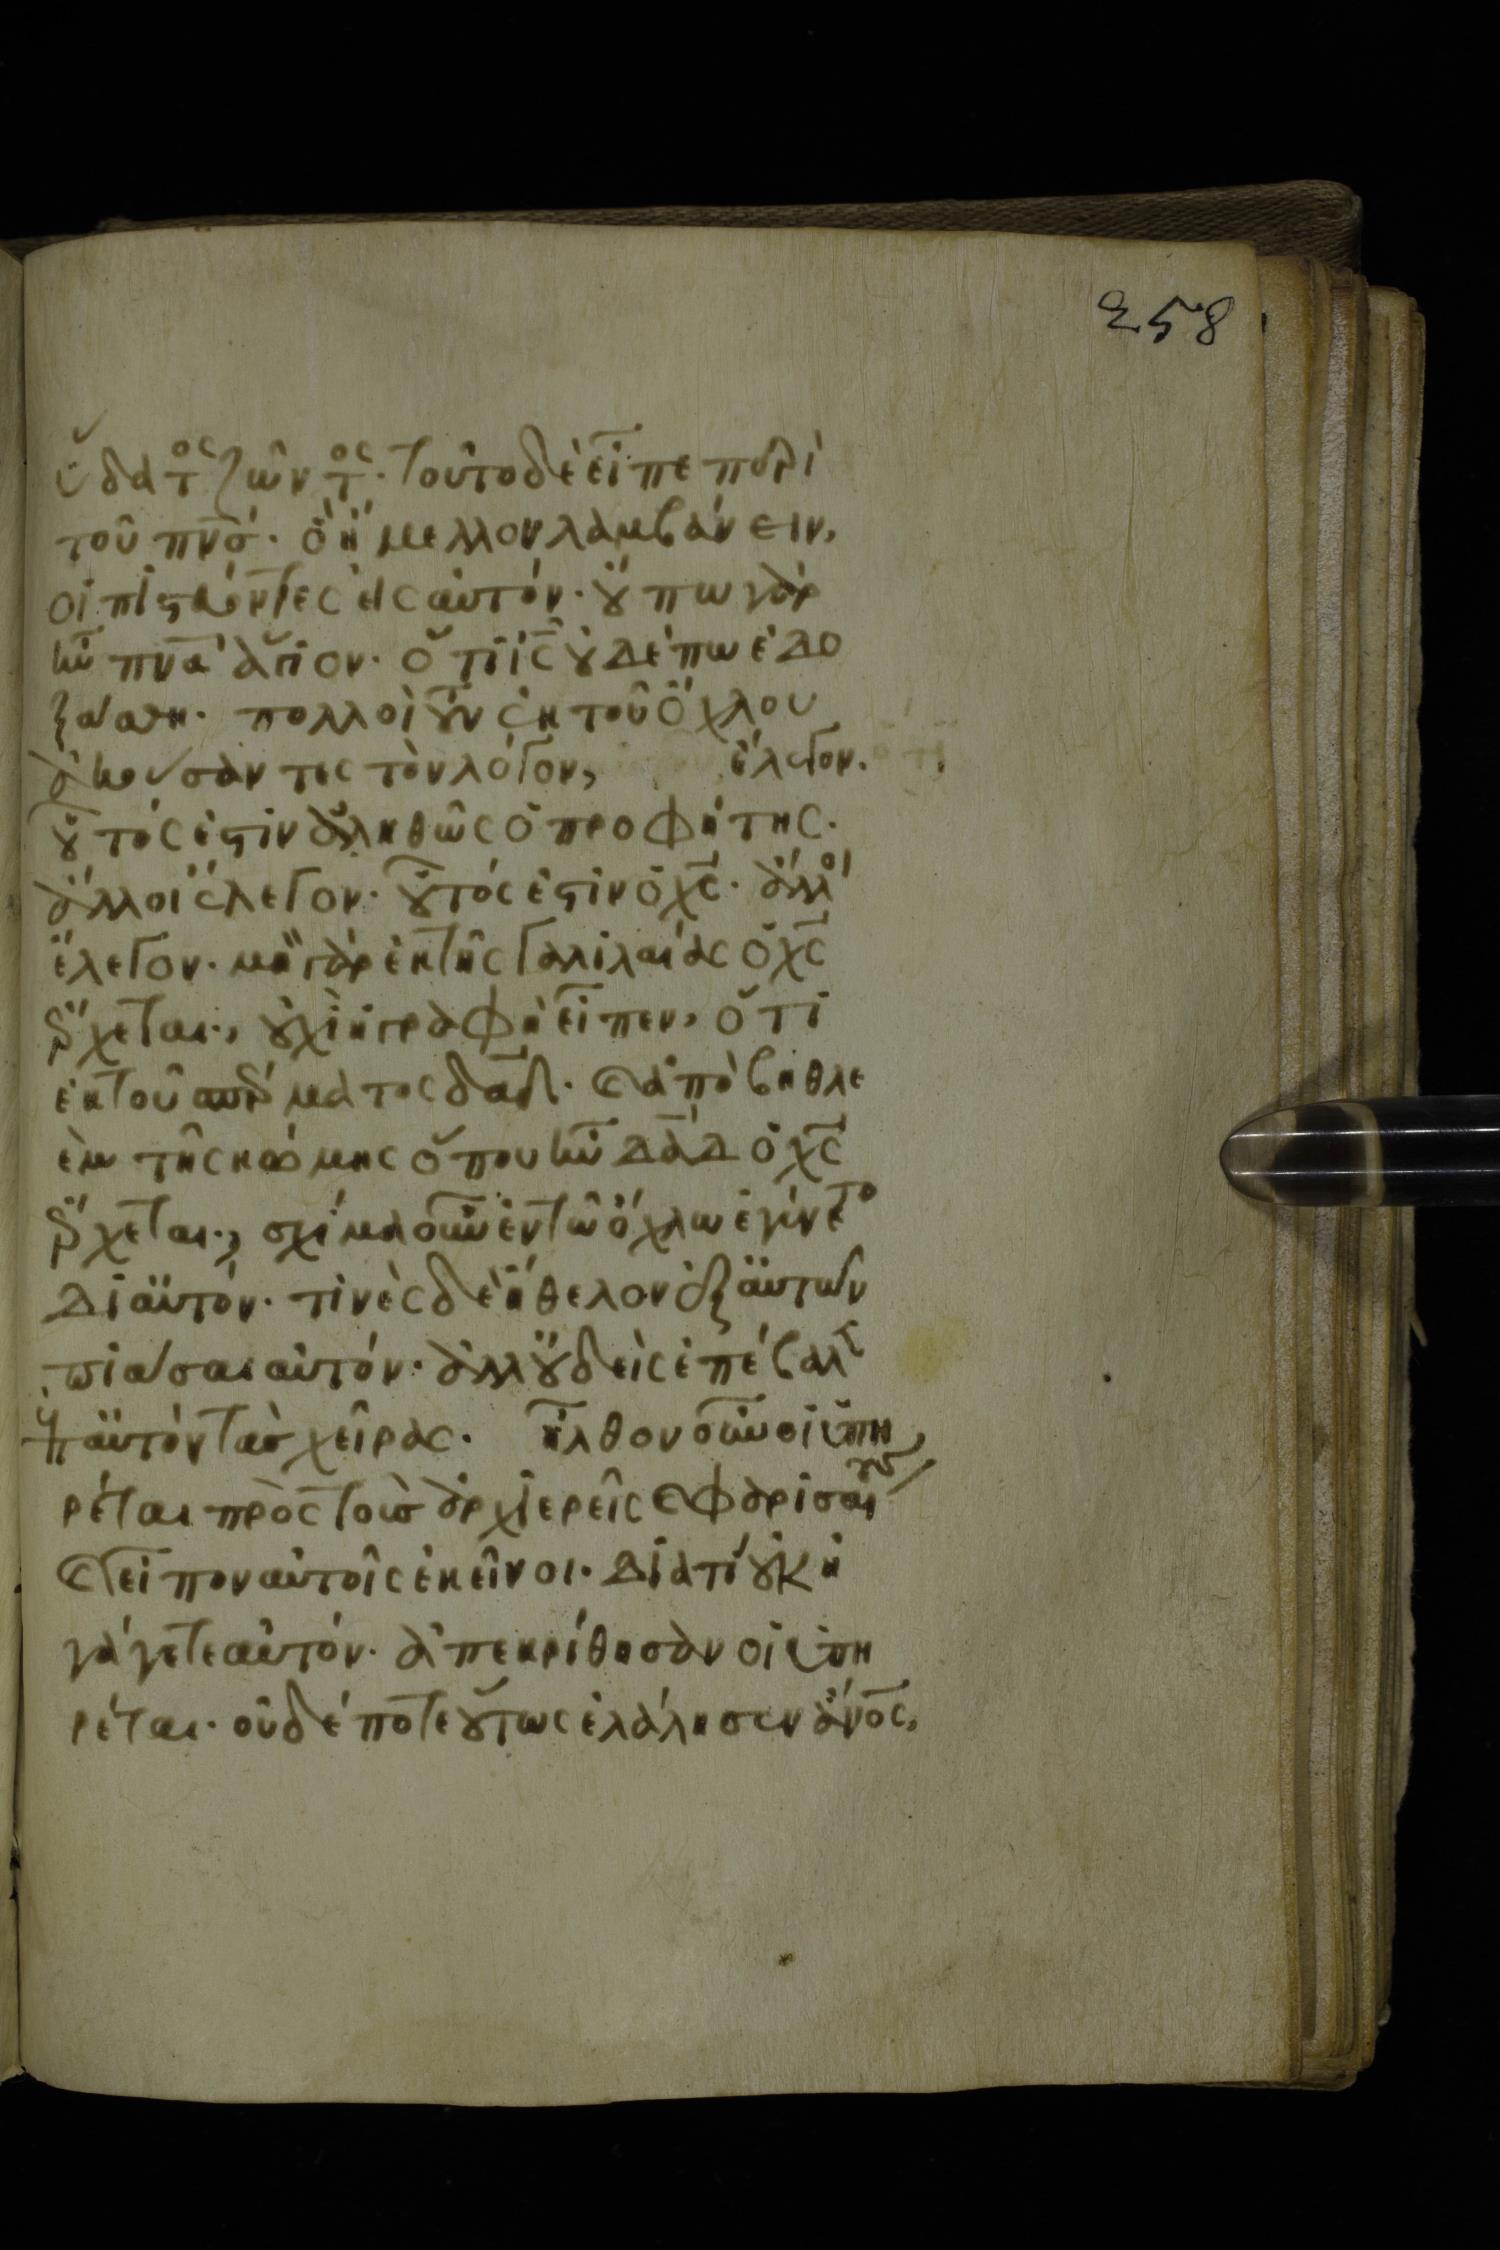 258
ὕδατος ζῶντος. τοῦτο δὲ εἶπε περὶ
τοῦ πνσ. ὃ ἤμελλον λαμβάνειν,
οἱ πιστεύοντες εἰς αὐτόν. οὔπω γὰρ
ἦν πνα ἅγιον. ὅτι ις οὐδέπω ἐδο
ξάσθη. πολλοὶ οὖν ἐκ τοῦ ὄχλου
ἀκούσαντες τὸν λόγον, ἔλεγον.
οὗτός ἐστιν ἀληθῶς ὁ προφήτης.
ἄλλοι ἔλεγον. οὗτός ἐστιν ὁ χς. ἄλλοι
ἔλεγον. μὴ γὰρ ἐκ τῆς γαλιλαίας ὁ χς
ἔρχεται., οὐχὶ ἡ γραφὴ εἶπεν, ὅτι
ἐκ τοῦ σπέρματος δαδ. καὶ ἀπὸ βηθλε
ὲμ τῆς κώμης ὅπου ἦν δαδ ὁ χς
ἔρχεται., σχίσμα οὖν ἐν τῶ ὄχλω ἐγίνετο
δι αὐτόν. τινὲς δὲ ἤθελον ἐξ αὐτῶν
πιάσαι αὐτόν. ἀλλ οὐδεὶς ἐπέβαλεν
ἐπ αὐτὸν τὰσ χεῖρας. ἦλθον οὖν οἱ ὑπη
ρέται πρὸς τοὺσ ἀρχιερεῖς καὶ φαρισαίους
καὶ εἶπον αὐτοῖς ἐκεῖνοι. διατί οὐκ ἠ
γάγετε αὐτόν. ἀπεκρίθησαν οἱ ὑπη
ρέται. οὐδέποτε οὕτως ἐλάλησεν ἄνος,